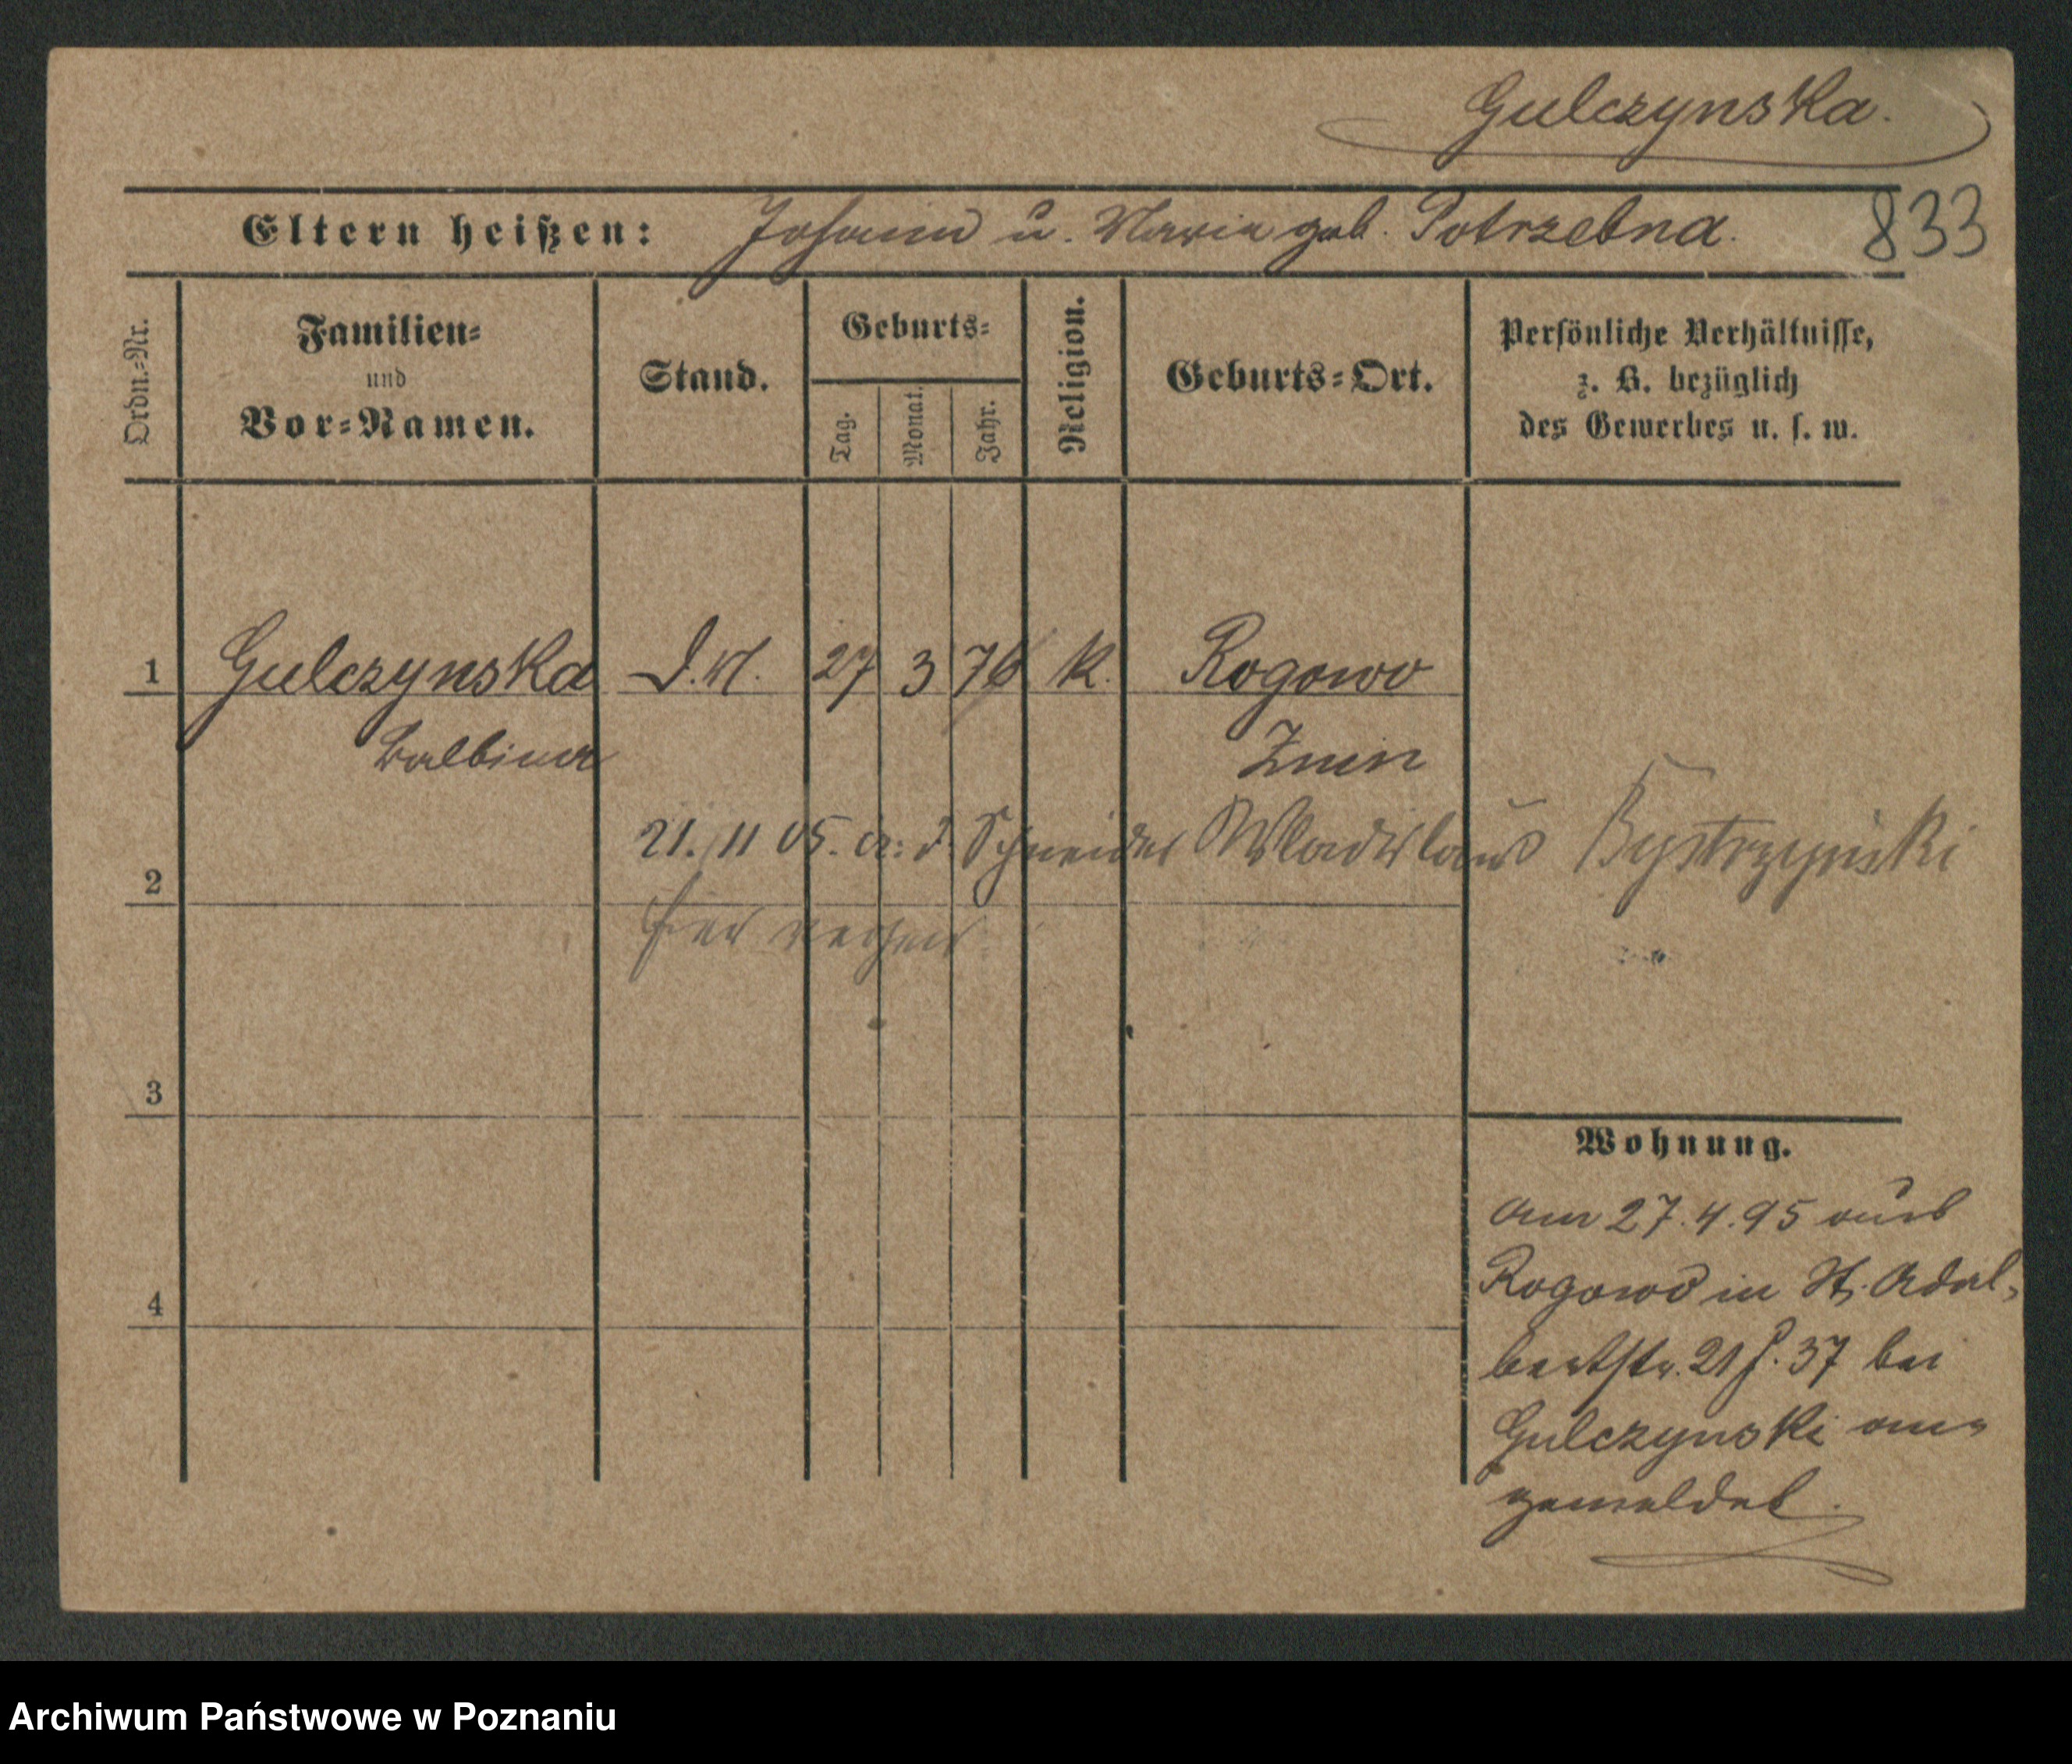 Gulczynska.
833
Eltern heißen: Johann u. Maria geb. Potrzebna.
Ordn.-Nr.
Familien-
und
Vor-Namen.
Stand.
Geburts-
Tag.
Monat.
Jahr.
Religion.
Geburts-Ort.
Persönliche Verhältnisse,
z. B. bezüglich
des Gewerbes u. s. w.
1 Gulczynska D.M. 27 3 76 k. Rogowo
Balbina Znin
21. 11 05. a: d. Schneider Wladislaus Bystrzynski
2
hier
3
4
Wohnung.
Am 27.4.95 aus
Rogowo in St. Adal-
bertstr. 21 J. 37 bei
Gulczynski an-
gemeldet.
Archiwum Państwowe w Poznaniu